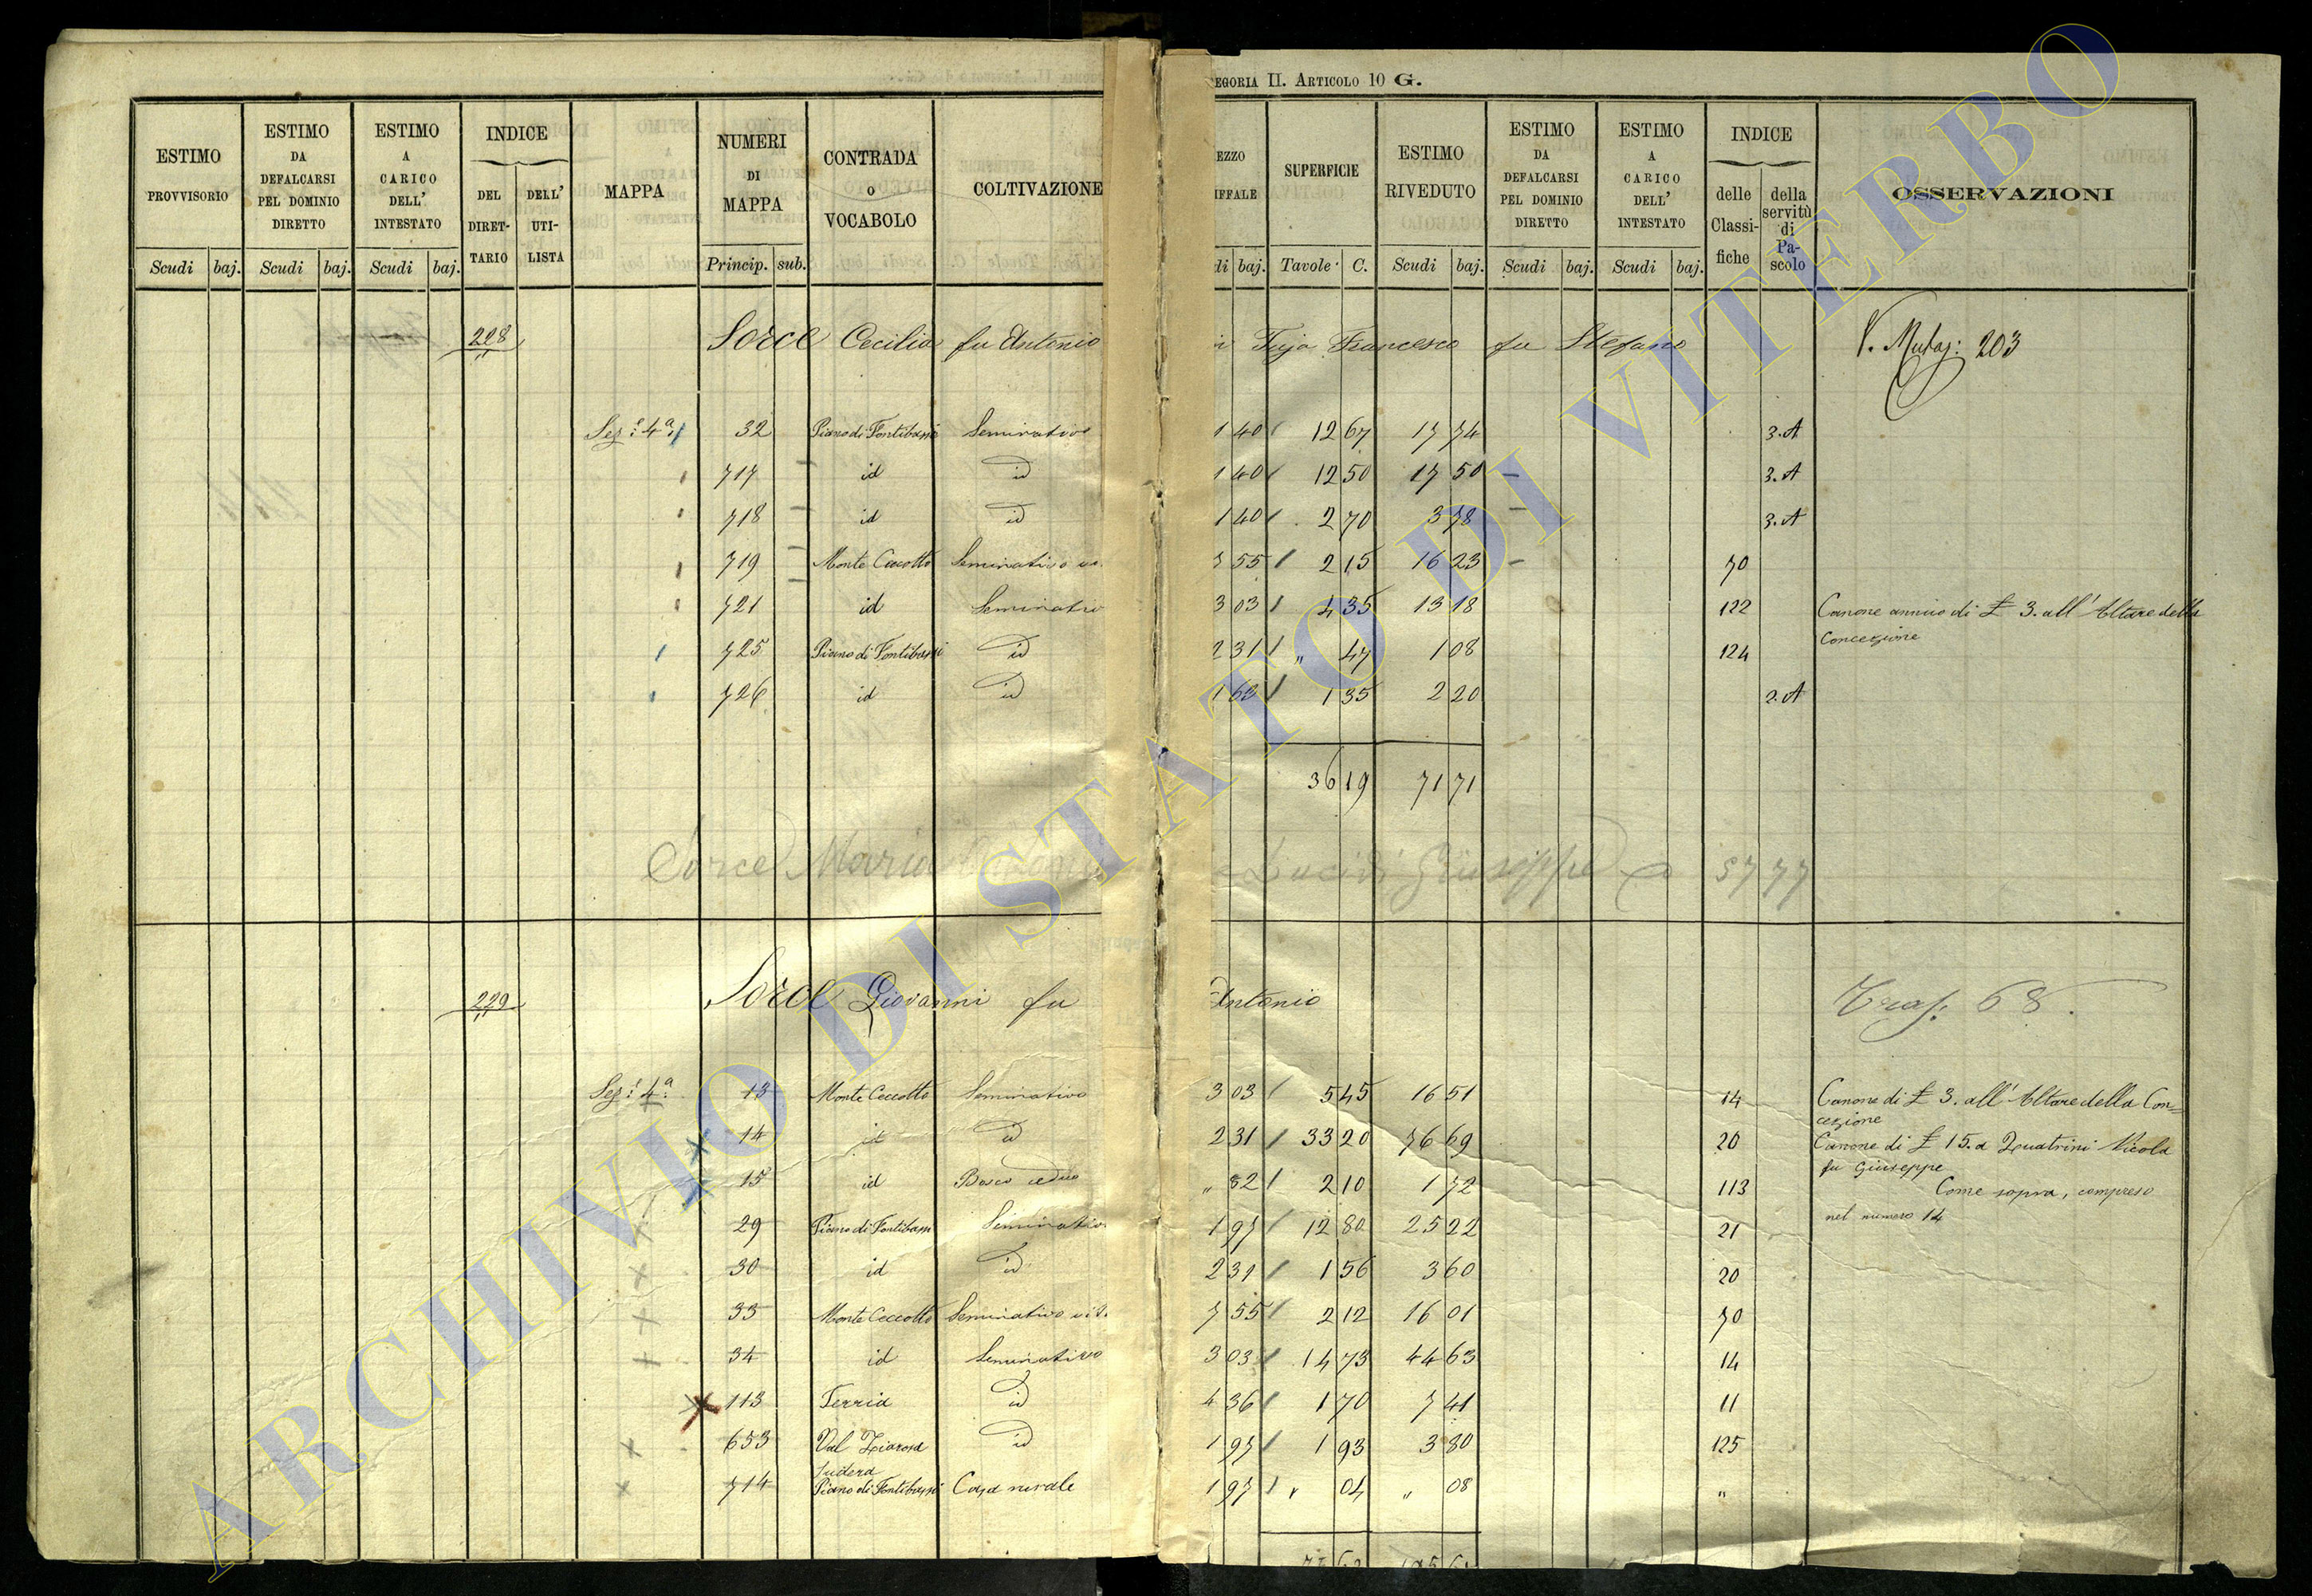 EGORIA II. ARTICOLO 10 G.
ESTIMO PROVVISORIO
ESTIMO DA DEFALCARSI PEL DOMINIO DIRETTO
ESTIMO A CARICO DELL' INTESTATO
INDICE
DEL DIRETTARIO
DELL' UTILISTA
MAPPA
NUMERI DI MAPPA
CONTRADA o VOCABOLO
COLTIVAZIONE
EZZO IFFALE
SUPERFICIE
ESTIMO RIVEDUTO
ESTIMO DA DEFALCARSI PEL DOMINIO DIRETTO
ESTIMO A CARICO DELL' INTESTATO
INDICE
delle Classifiche
della servitù di Pascolo
OSSERVAZIONI
Scudi baj. Scudi baj. Scudi baj. Princip. sub. di baj. Tavole C. Scudi baj. Scudi baj. Scudi baj.
228 Sorce Cecilia fu Antonio in Fuja Francesco fu Stefano V. Mutaz: 203
Sez: 4a 32 Piano di Fontibassi Seminativo 1 40 12 67 17 74 3.A
717 id id 1 40 12 50 17 50 3.A
718 id id 1 40 2 70 3 78 3.A
719 Monte Ceccotto Seminativo 7 55 2 15 16 23 70
721 id Seminativo 3 03 4 35 13 18 122 Canone annuo di £ 3. all'Altare della
Concezione
725 Piano di Fontibassi id 2 31 " 47 1 08 124
726 id id 1 63 1 35 2 20 2.A
36 19 71 71
Sorce Maria Lucidi Giuseppe 57 77
229 Sorce Giovanni fu Antonio Trasp: 68.
Sez: 4a 13 Monte Ceccotto Seminativo 3 03 5 45 16 51 14 Canone di £ 3. all'Altare della Con=
cezione
14 id id 2 31 33 20 76 69 20 Canone di £ 15. a Quatrini Nicola
fu Giuseppe
15 id Bosco ceduo " 82 2 10 1 72 113 Come sopra, compreso
nel numero 14
29 Piano di Fontibassi Seminativo 1 97 12 80 25 22 21
30 id id 2 31 1 56 3 60 20
33 Monte Ceccotto Seminativo vit 7 55 2 12 16 01 70
34 id Seminativo 3 03 14 73 44 63 14
113 Ferria id 4 36 1 70 7 41 11
653 Val id 1 97 1 93 3 80 125
714 Piano di Fontibassi Casa rurale 1 97 " 04 " 08 "
ARCHIVIO DI STATO DI VITERBO